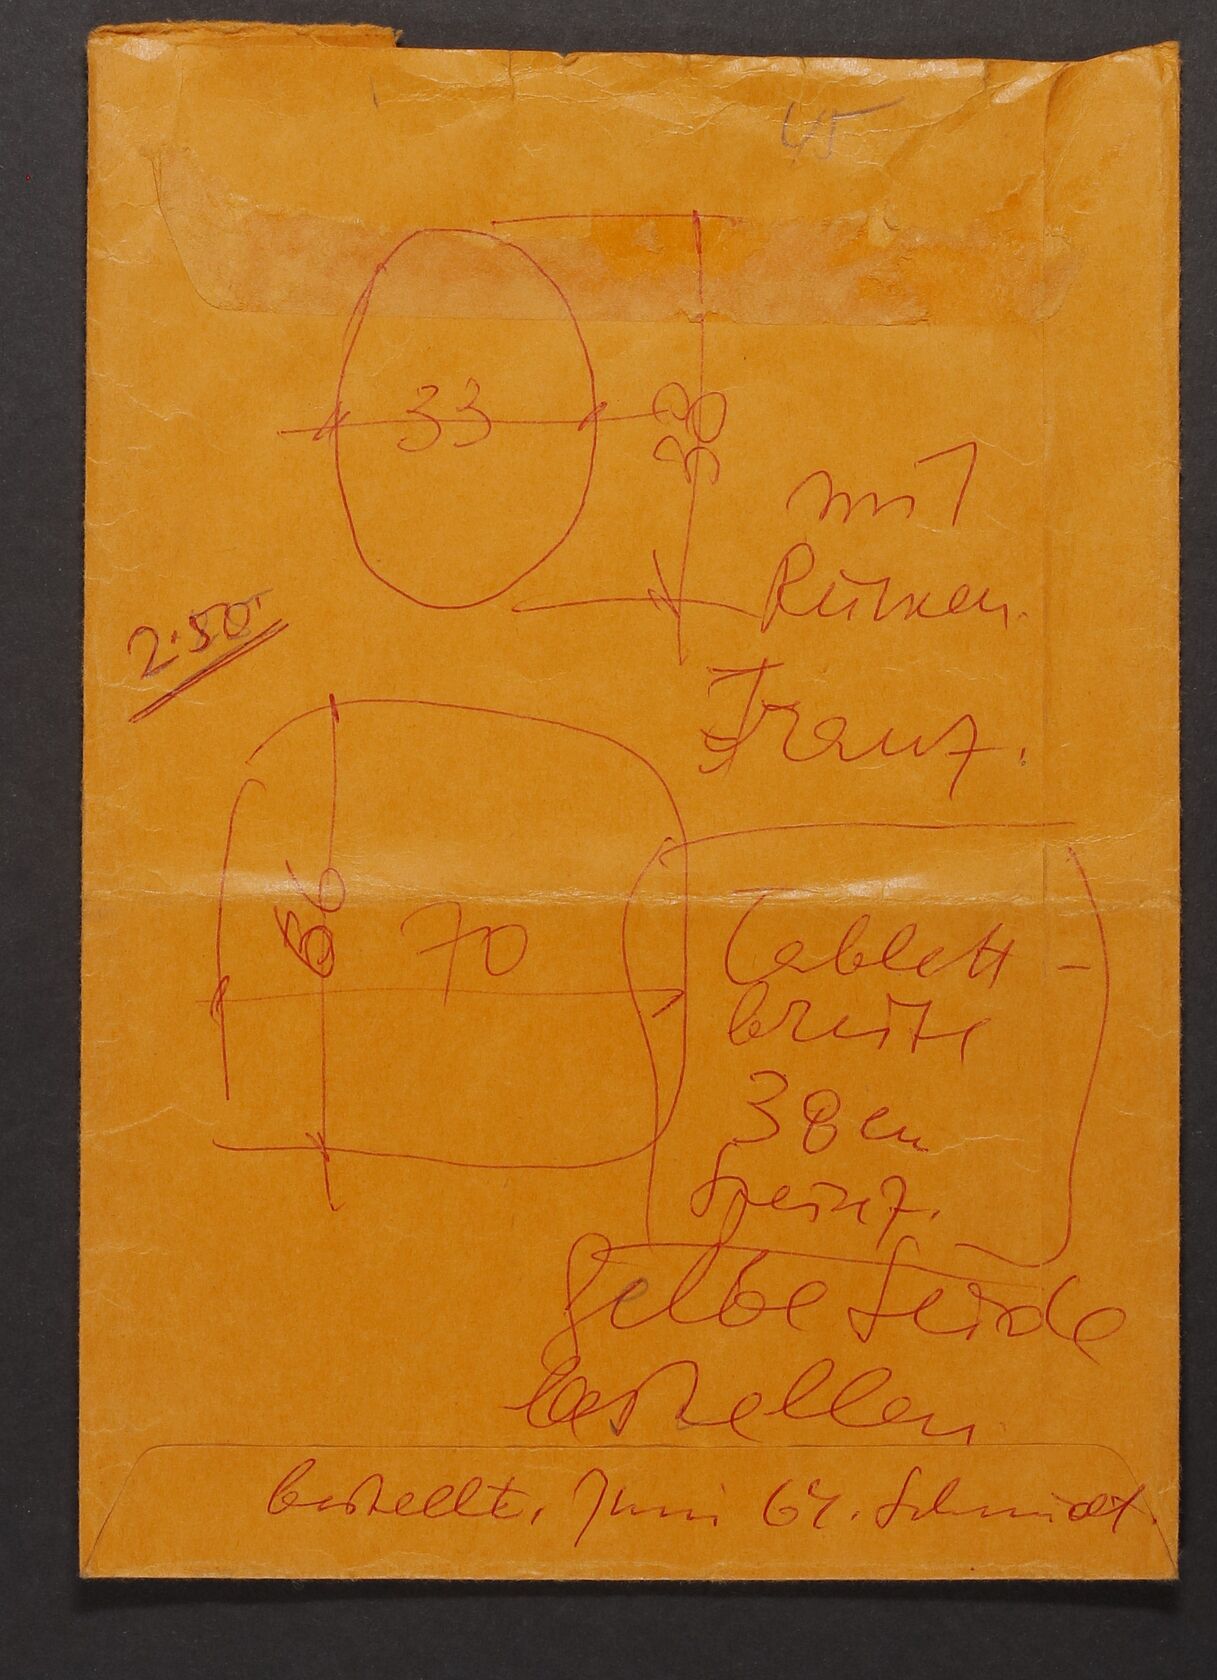 45
33
38
mit
Rücken.
2.50.
Franz.
66
70
Tablett-
breite
38 cm
Speisez.
gelbe Seide
bestellen
bestellt. Juni 64. Schmidt.